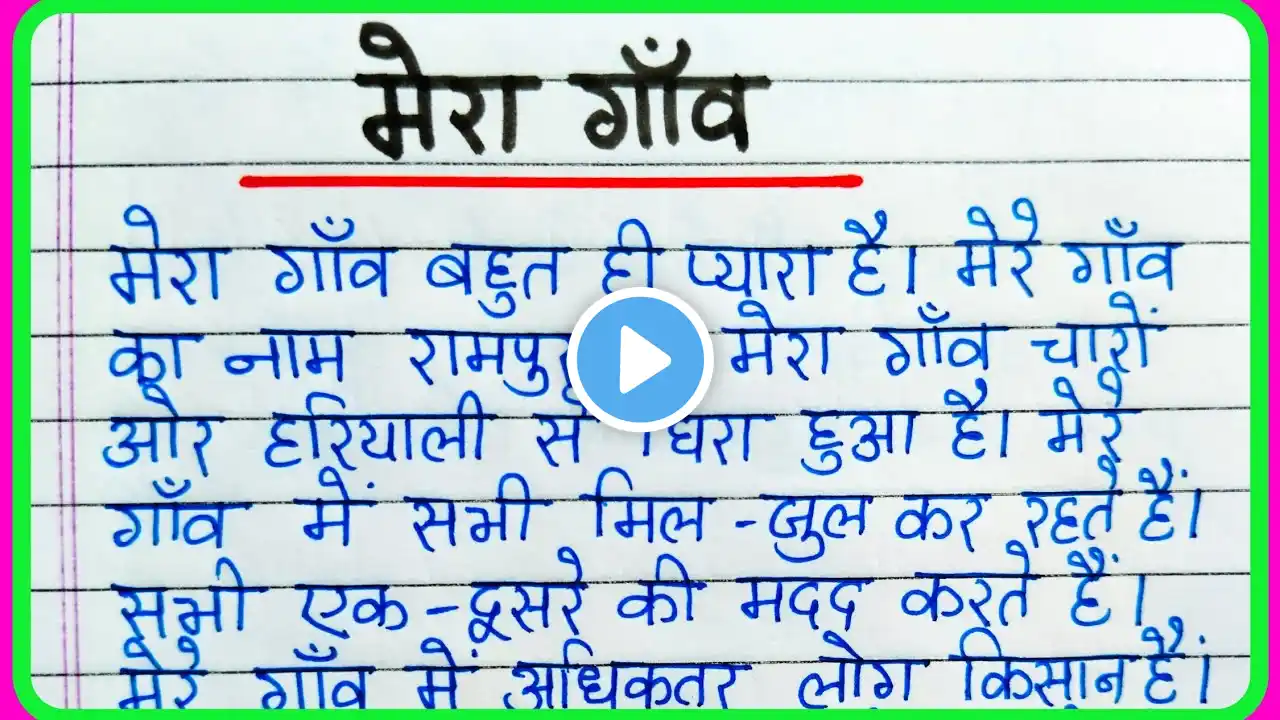 मेरा गाँव
मेरा गाँव बहुत ही प्यारा है। मेरे गाँव
का नाम मेरा गाँव चारों
ओर हरियाली से घिरा हुआ है। मेरे
गाँव में सभी मिल-जुल कर रहते हैं।
सभी एक-दूसरे की मदद करते हैं।
मेरे गाँव में अधिकतर लोग किसान हैं।